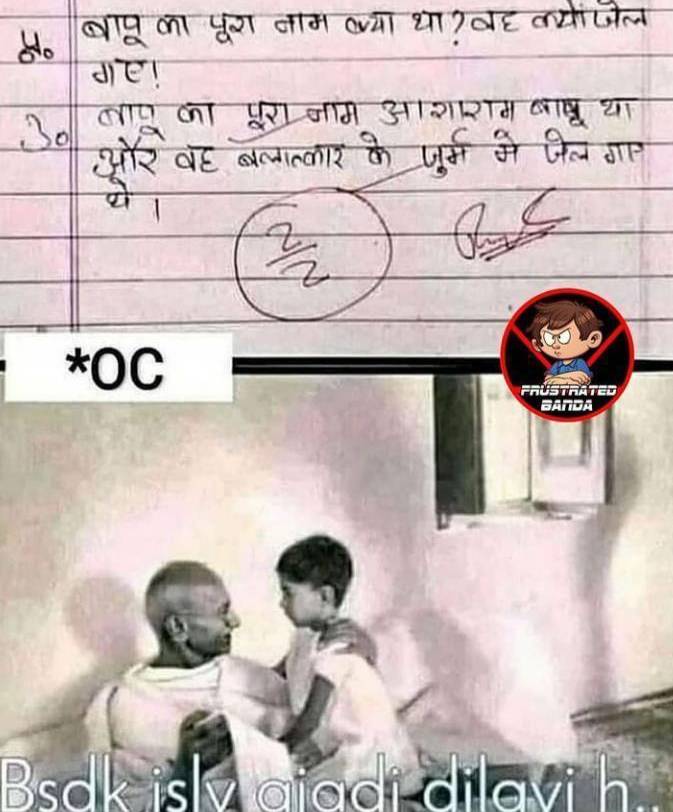 प्र० बापू का पूरा नाम क्या था? वह क्यों जेल
गए!
उ० बापू का पूरा नाम आशाराम बापू था
और वह बलात्कार के जुर्म मे जेल गए
थे ।
2/2
*OC
FRUSTRATED
BANDA
Bsdk isly ajadi dilayi h..